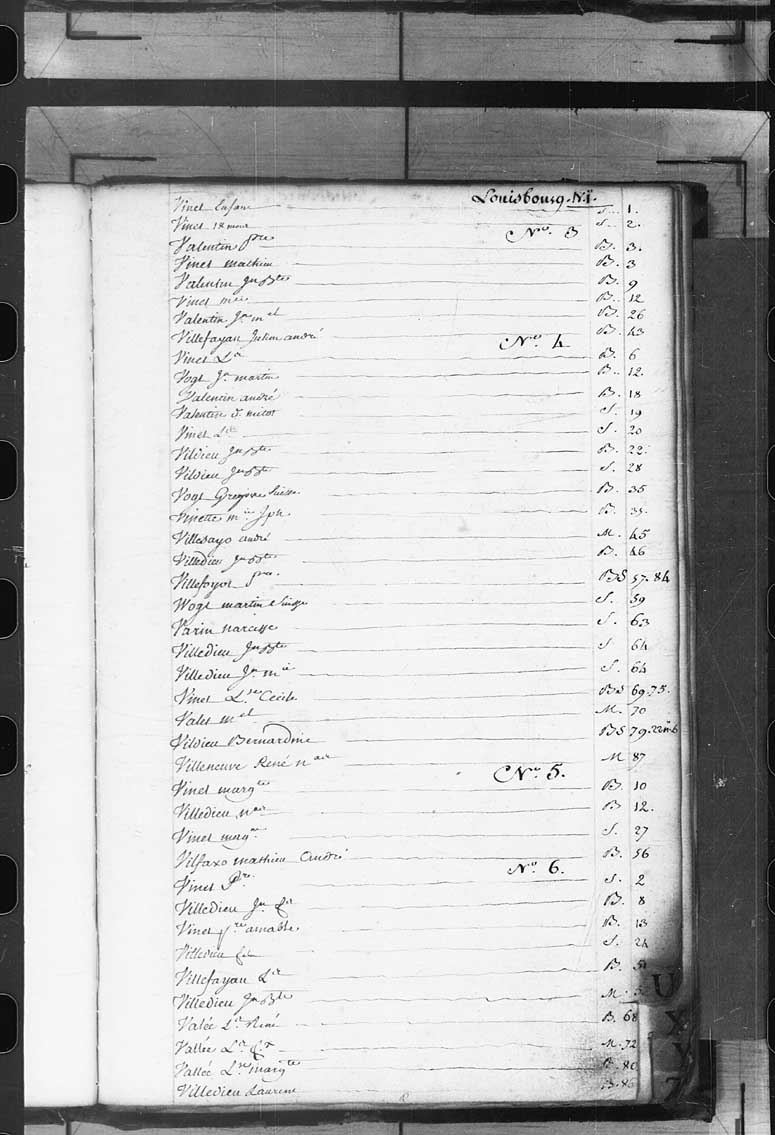 Louisbourg. N.1.
Vinet Enfant S. 1.
Vinet 18 mois S. 2.
No. 3
Valentin pre B. 3.
Vinet mathieu B. 3
Valentin Jn Bte B. 9
Vinet mie B. 12
Valentin Jn mel B. 26
Villefayau Julien andré B. 43
No. 4
Vinet Ls B. 6
Vogt Jn martin B. 12.
Valentin andré B. 18
Valentin d. micot S. 19
Vinet S. 20
Vildieu Jn Bte B. 22.
Vildieu Jn Bte S. 28
Vogt Gregoire Suisse B. 35
Vinette mie Jph B. 35.
Villesayo andré M. 45
Villedieu Jn Bte B. 46
Villefoyot pre. BS 57. 84
Wogt martin Suisse S. 59
Varin narcisse S. 63
Villedieu Jn Bte S 64
Villedieu Jn mie S. 64
Vinet Lse Cécile BS 69. 75.
Valet mel M. 70
Vildieu Bernardine BS 79. 22 n.6
Villeneuve René M 87
No. 5.
Vinet margte B. 10
Villedieu B 12.
Vinet margte S. 27
Vilfaxo mathieu André B. 56
No. 6.
Vinet Pre. S. 2
Villedieu Jn B. 8
Vinet pre amable B. 13
Villedieu S. 24
Villefayau B. 51
Villedieu Jn Bte M.
Valée Ls René B. 68
Vallée Ls M. 72
Vallée Lse margte B. 80
Villedieu Laurent B. 86
U
X
Y
Z